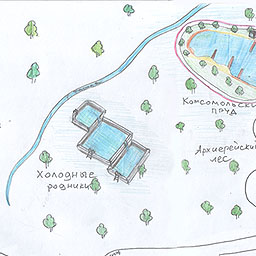 Комсомольский
пруд
Архиерейский
лес
Холодные
родники